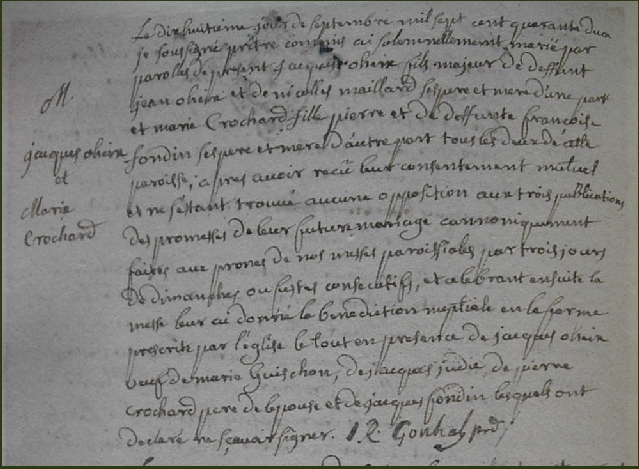 Le dixhuitième jour de septembre mil sept cent quarante deux
je soussigné prêtre commis ai solemnellement marié par
paroles de present jacques oheix fils majeur de deffunt
jean oheix et de nicolles maillard ses pere et mere d'une part
et marie Crochard fille pierre et de deffunte francoise
fondin ses pere et mere d'autre part tous les deux de cette
paroisse, apres avoir recü leur consentement mutuel
et ne s'étant trouvé aucune opposition aux trois publications
des promesses de leur futur mariage cannoniquement
faites aux prones de nos messes paroissiales par trois jours
de dimanches ou festes consecutifs, et celebrant ensuite la
messe leur ai donné la benediction nuptiale en la forme
prescrite par l'église le tout en presence de jacques oheix
veuf de marie Guischon, de jacques judic, de pierre
Crochard pere de l'epouse et de jacques fondin lesquels ont
declaré ne sçavoir signer. I R.
M.
jacques oheix
et
Marie
Crochard